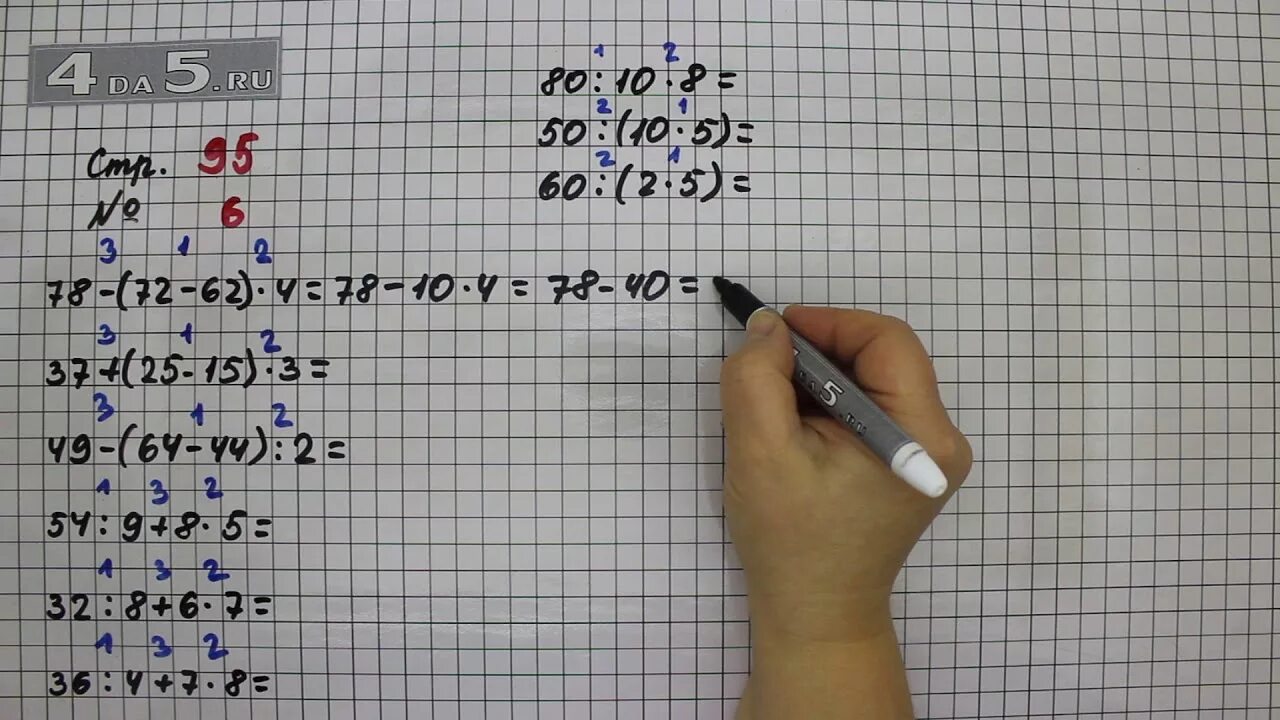 4DA5.RU
Стр. 95
№ 6
3 1 2
78-(72-62)·4=78-10·4=78-40=
3 1 2
37+(25-15)·3=
3 1 2
49-(64-44):2=
1 3 2
54:9+8·5=
1 3 2
32:8+6·7=
1 3 2
36:4+7·8=
1 2
80:10·8=
2 1
50:(10·5)=
2 1
60:(2·5)=
5.RU